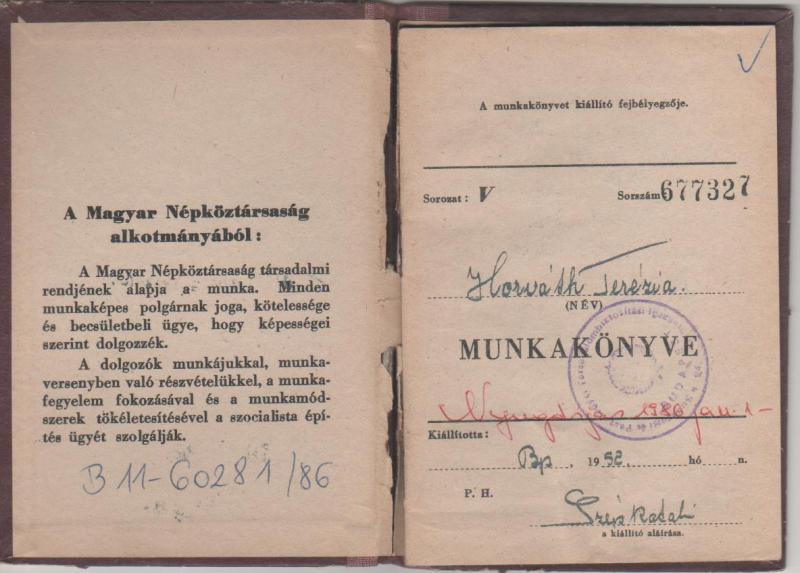 A Magyar Népköztársaság
alkotmányából:
A Magyar Népköztársaság társadalmi
rendjének alapja a munka. Minden
munkaképes polgárnak joga, kötelessége
és becsületbeli ügye, hogy képességei
szerint dolgozzék.
A dolgozók munkájukkal, munka-
versenyben való részvételükkel, a munka-
fegyelem fokozásával és a munkamód-
szerek tökéletesítésével a szocialista épí-
tés ügyét szolgálják.
B 11-60281/86
A munkakönyvet kiállító fejbélyegzője.
Sorozat: V Sorszám 677327
Horváth Terézia.
(NÉV)
MUNKAKÖNYVE
Nyugdíjas 1986 jan 1-
Kiállította:
Bp, 1952. hó n.
P. H.
a kiállító aláírása.